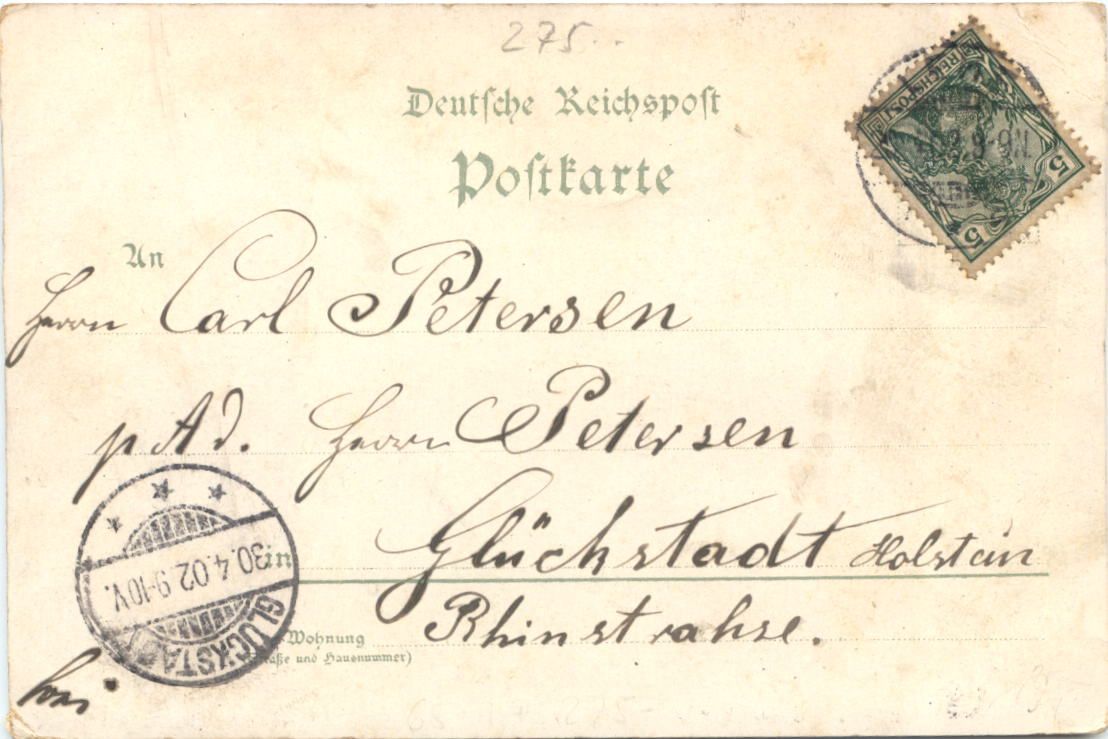 275..
Deutsche Reichspost
Postkarte
REICHSPOST
5 5
An
Herrn Carl Petersen
p Ad. Herrn Petersen
in Glückstadt Holstein
Rhinstrahse.
Wohnung
(Straße und Hausnummer)
GLÜCKSTADT
30.4.02.9-10V.